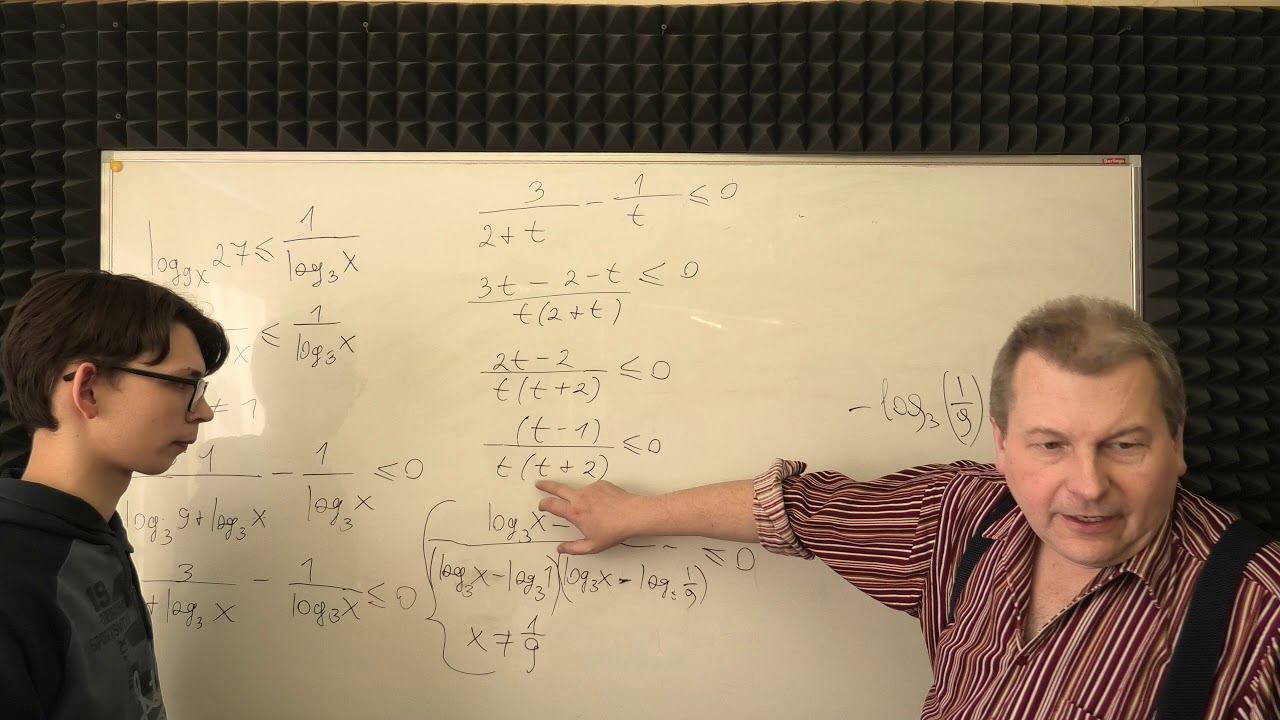 log_{9x} 27 ≤ \frac{1}{log_3 x}
x ≤ \frac{1}{log_3 x}
≠ 1
\frac{1}{log_3 9 + log_3 x} - \frac{1}{log_3 x} ≤ 0
\frac{3}{+ log_3 x} - \frac{1}{log_3 x} ≤ 0
\frac{3}{2+t} - \frac{1}{t} ≤ 0
\frac{3t - 2 - t}{t(2+t)} ≤ 0
\frac{2t - 2}{t(t+2)} ≤ 0
\frac{(t-1)}{t(t+2)} ≤ 0
\frac{log_3 x -}{(log_3 x - log_3 1)(log_3 x - log_3 \frac{1}{9})} ≤ 0
x ≠ \frac{1}{9}
- log_3 (\frac{1}{9})
Berlingo
19